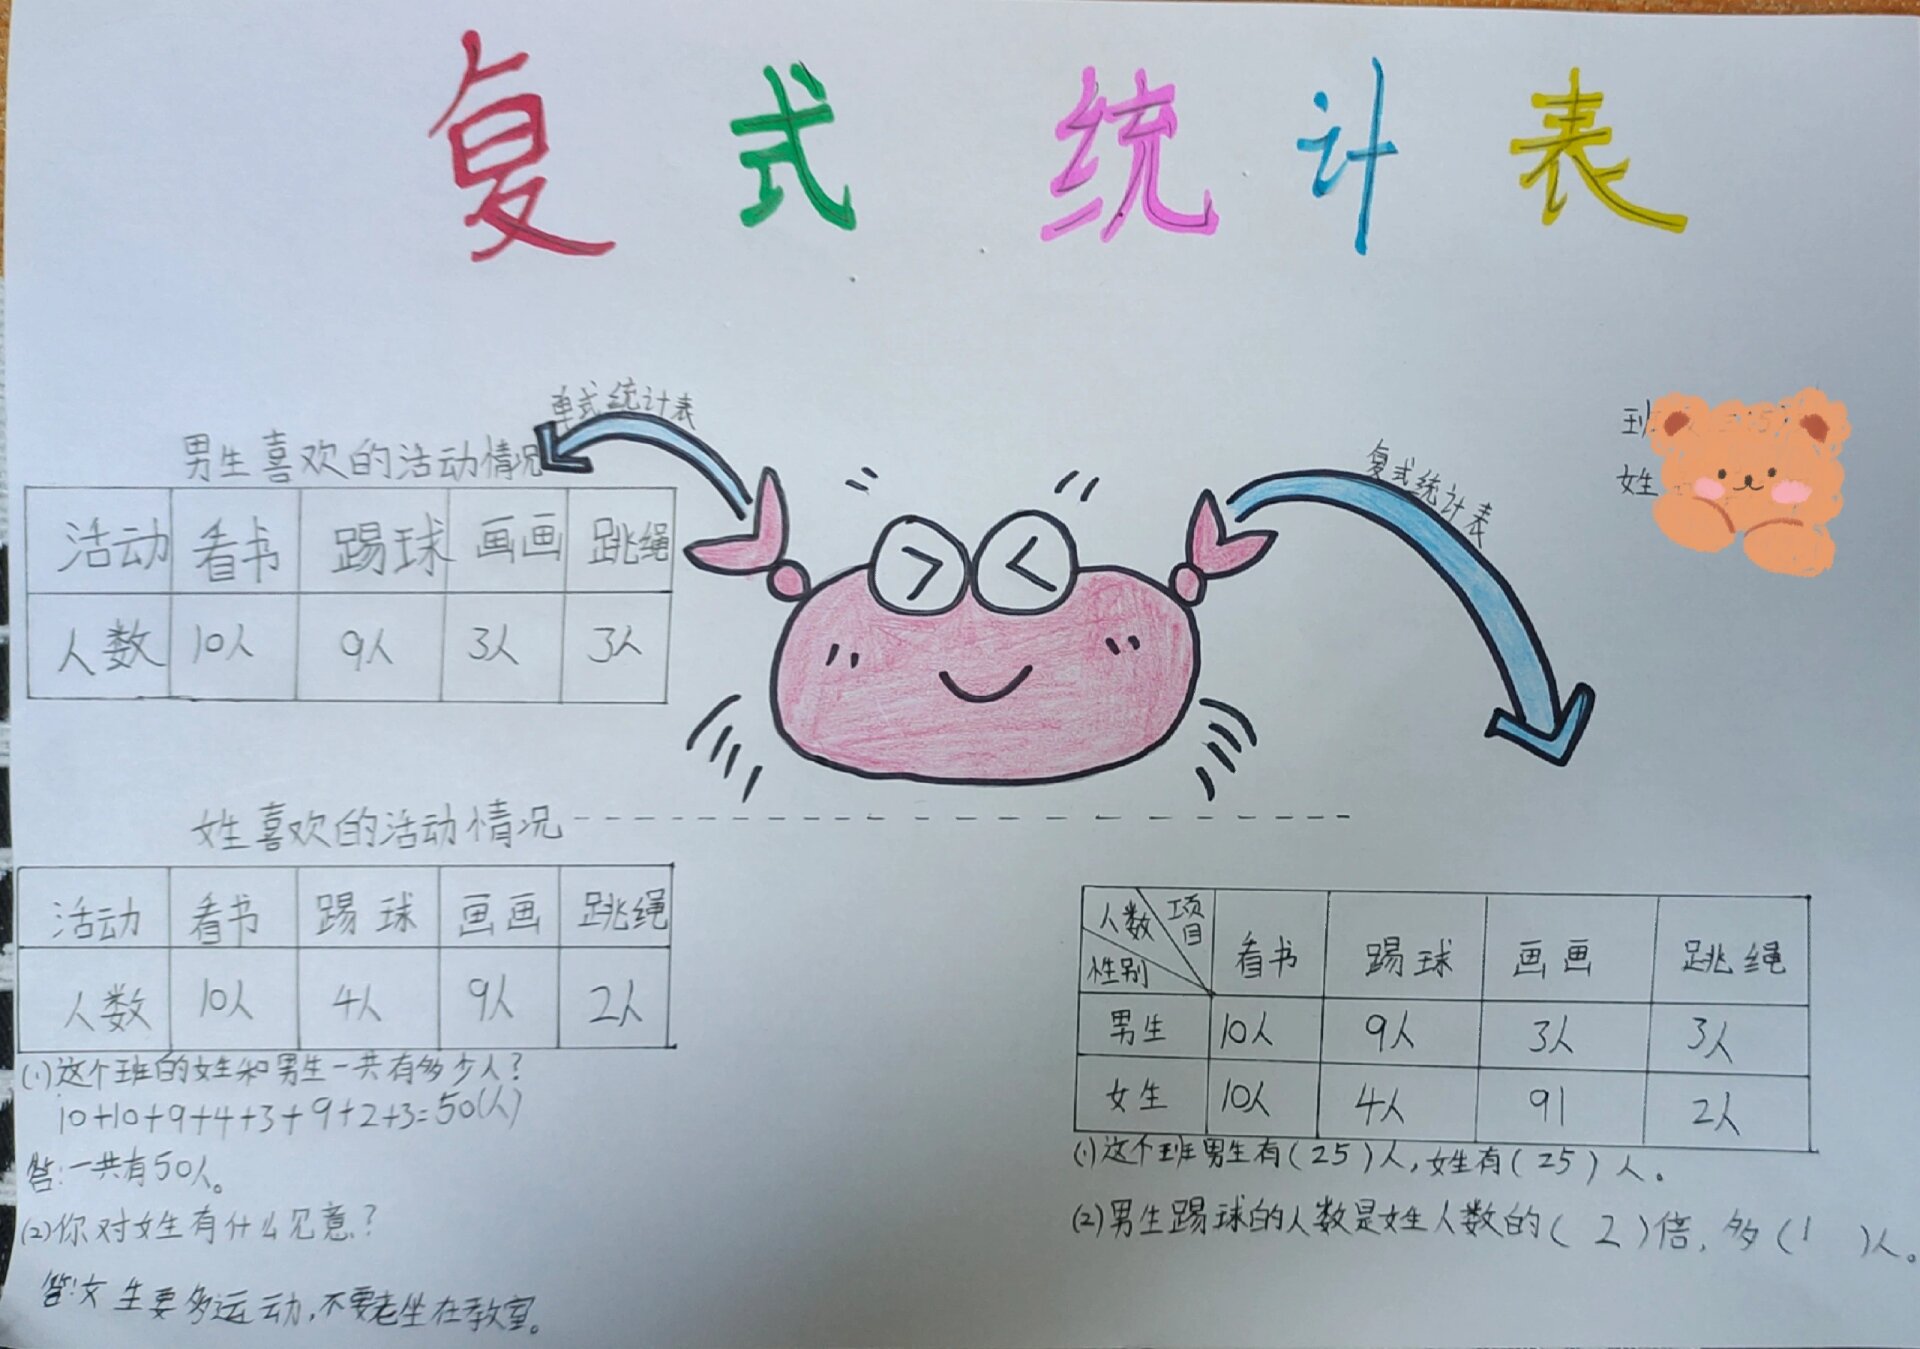 复式统计表
单式统计表
男生喜欢的活动情况
活动 看书 踢球 画画 跳绳
人数 10人 9人 3人 3人
复式统计表
班
姓
女生喜欢的活动情况
活动 看书 踢球 画画 跳绳
人数 10人 4人 9人 2人
(1)这个班的女生和男生一共有多少人?
10+10+9+4+3+9+2+3=50(人)
答:一共有50人。
(2)你对女生有什么见意?
答:女生要多运动,不要老坐在教室。
人数 项目
性别
看书 踢球 画画 跳绳
男生 10人 9人 3人 3人
女生 10人 4人 91 2人
(1)这个班男生有(25)人,女生有(25)人。
(2)男生踢球的人数是女生人数的(2)倍,多(1)人。